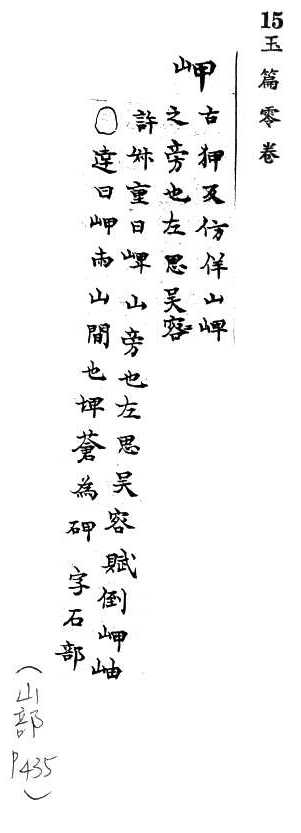 15 玉篇零卷
岬 古狎反仿佯山岬
之旁也左思吴容
許妳重日崥山旁也左思吴容賦倒岬岫
○逹曰岬兩山間也埤蒼為砷字石部
(山部 P435)